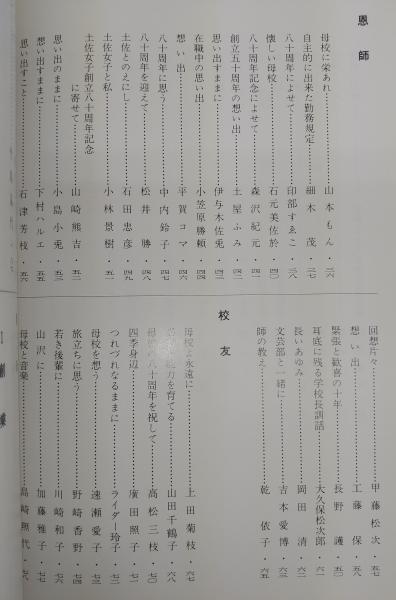 恩師
母校に栄あれ…………山本もん・三六
自主的に出来た勤務規定…………細木茂・三七
八十周年によせて…………印部すゑこ・三八
懐しい母校…………石元美佐於・四〇
八十周年記念によせて…………森沢紀元・四一
創立五十周年の想い出…………土屋ふみ・四二
思い出すままに…………伊与木佐兎・四三
在職中の思い出…………小笠原勝頼・四四
想い出…………平賀コマ・四六
八十周年に思う…………中内鈴子・四七
八十周年を迎えて…………松井勝・四八
土佐とのえにし…………石田忠彦・四九
土佐女子と私…………小林景樹・五一
土佐女子創立八十周年記念
に寄せて…………山崎熊吉・五二
思い出のままに…………小島小兎・五三
想い出すままに…………下村ハルエ・五五
思い出すこと…………石津芳枝・五六
回想片々…………甲藤松次・五七
想い出…………工藤保・五八
緊張と歓喜の十年…………長野護・五〇
耳底に残る学校長訓話…………大久保松次郎・六一
長いあゆみ…………岡田清・六二
文芸部と一緒に…………吉本愛博・六三
師の教え…………乾依子・六五
校友
母校よ永遠に…………上田菊枝・六七
力を育てる…………山田千鶴子・六八
八十周年を祝して…………高松三枝・七〇
四季身辺…………廣田照子・七一
つれづれなるままに…………ライダー玲子・七二
母校を想う…………速瀬愛子・七三
旅立ちに思う…………野崎香野・七四
若き後輩に…………川崎和子・七六
山沢に…………加藤雅子・七七
母校と音楽…………島崎照代・七八